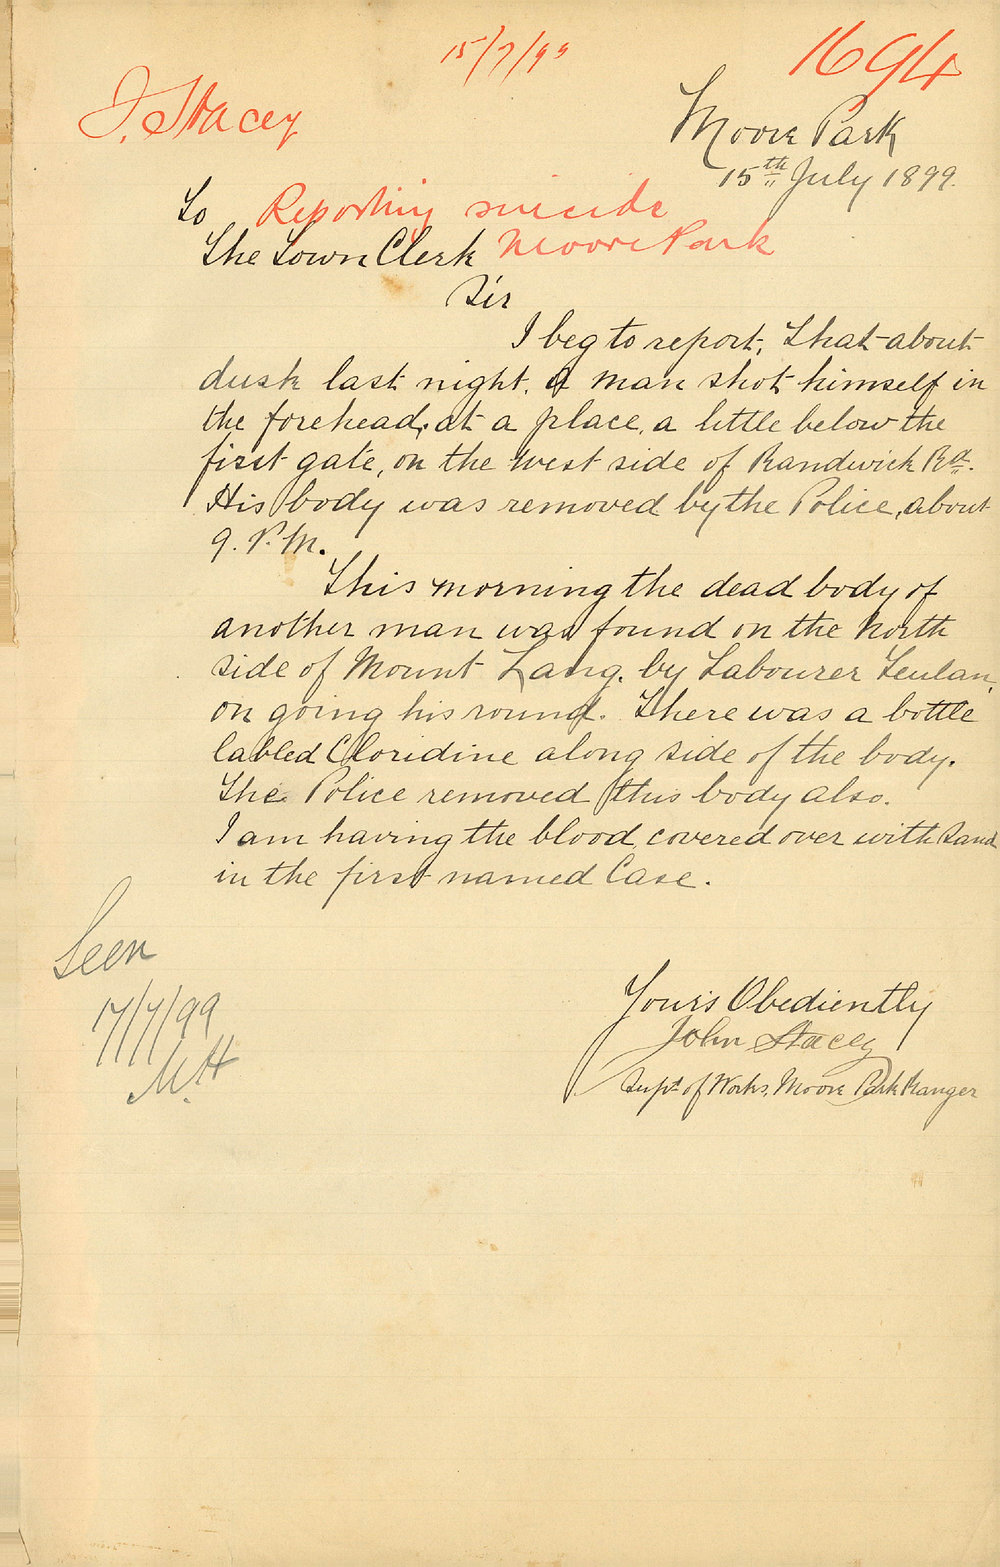 15/7/99
1694
J. Stacey
Moore Park
15th July 1899.
To Reporting suicide
The Town Clerk Moore Park
Sir
I beg to report, that about
dusk last night, a man shot himself in
the forehead, at a place, a little below the
first gate, on the west side of Randwick Rd.
His body was removed by the Police, about
9. P.M.
This morning the dead body of
another man was found on the North
side of Mount Lang. by Labourer
on going his round. There was a bottle
labled Cloridine along side of the body.
The Police removed this body also.
I am having the blood, covered over with Sand
in the first named Case.
Seen
17/7/99
Yours Obediently
John Stacey
Supt of Works, Moore Park Ranger